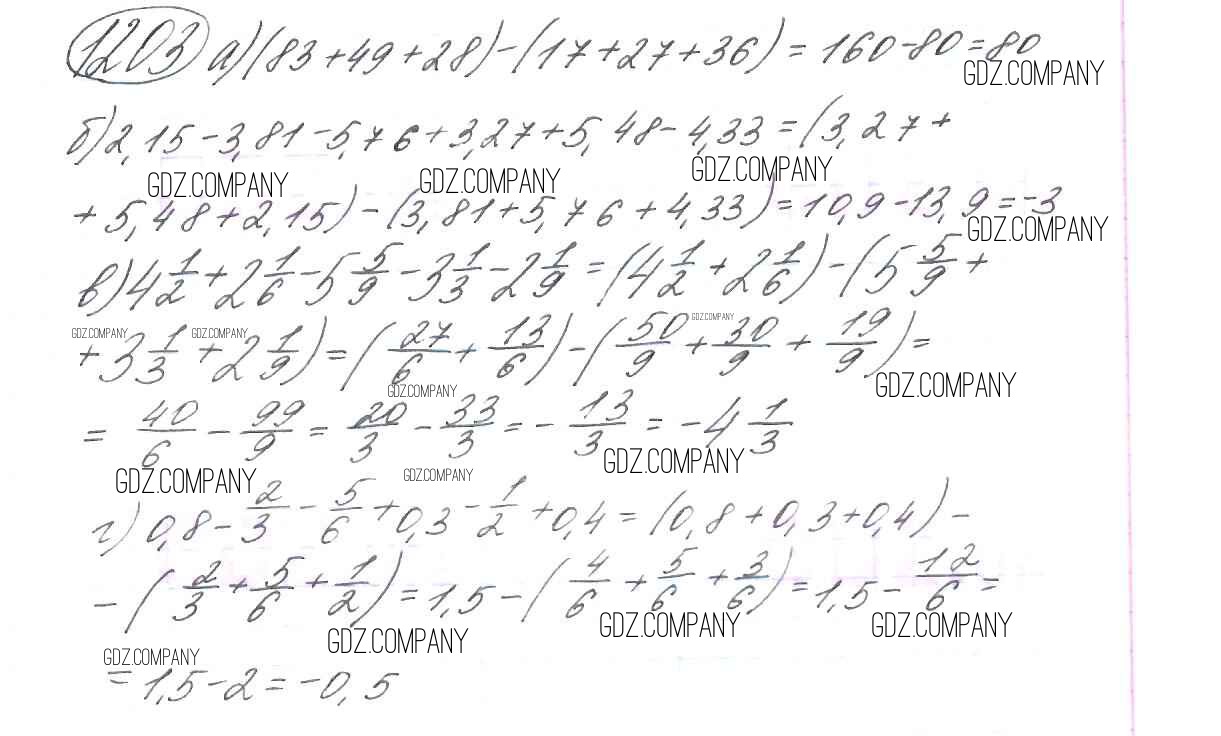 1203 а) (83+49+28)-(17+27+36) = 160-80=80
GDZ.COMPANY
б) 2,15-3,81-5,76+3,27+5,48-4,33=(3,27+
GDZ.COMPANY GDZ.COMPANY GDZ.COMPANY
+5,48+2,15)-(3,81+5,76+4,33)=10,9-13,9=-3
GDZ.COMPANY
в) 4 1/2 + 2 1/6 - 5 5/9 - 3 1/3 - 2 1/9 = (4 1/2 + 2 1/6) - (5 5/9 +
GDZ.COMPANY GDZ.COMPANY GDZ.COMPANY
+ 3 1/3 + 2 1/9) = (27/6 + 13/6) - (50/9 + 30/9 + 19/9) =
GDZ.COMPANY GDZ.COMPANY
= 40/6 - 99/9 = 20/3 - 33/3 = - 13/3 = -4 1/3
GDZ.COMPANY GDZ.COMPANY GDZ.COMPANY
г) 0,8 - 2/3 - 5/6 + 0,3 - 1/2 + 0,4 = (0,8+0,3+0,4) -
- (2/3 + 5/6 + 1/2) = 1,5 - (4/6 + 5/6 + 3/6) = 1,5 - 12/6 =
GDZ.COMPANY GDZ.COMPANY GDZ.COMPANY
GDZ.COMPANY
= 1,5-2 = -0,5